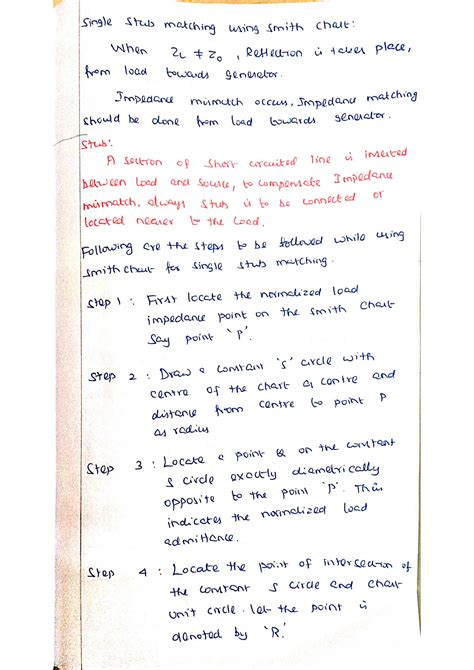 Single Stub matching using Smith chart:
When ZL ≠ Z0, Reflection is takes place,
from load towards generator.
Impedance mismatch occurs, Impedance matching
should be done from load towards generator.
Stub:
A section of short circuited line is inserted
between load and source, to compensate Impedance
mismatch, always stub is to be connected or
located nearer to the load.
Following are the steps to be followed while using
smith chart for single stub matching.
Step 1 : First locate the normalized load
impedance point on the smith chart
say point 'P'.
Step 2 : Draw a constant 's' circle with
centre of the chart as centre and
distance from centre to point P
as radius
Step 3 : Locate a point Q on the constant
s circle exactly diametrically
opposite to the point 'P'. This
indicates the normalized load
admittance.
Step 4 : Locate the point of intersection of
the constant s circle and chart
unit circle. let the point is
denoted by 'R.'